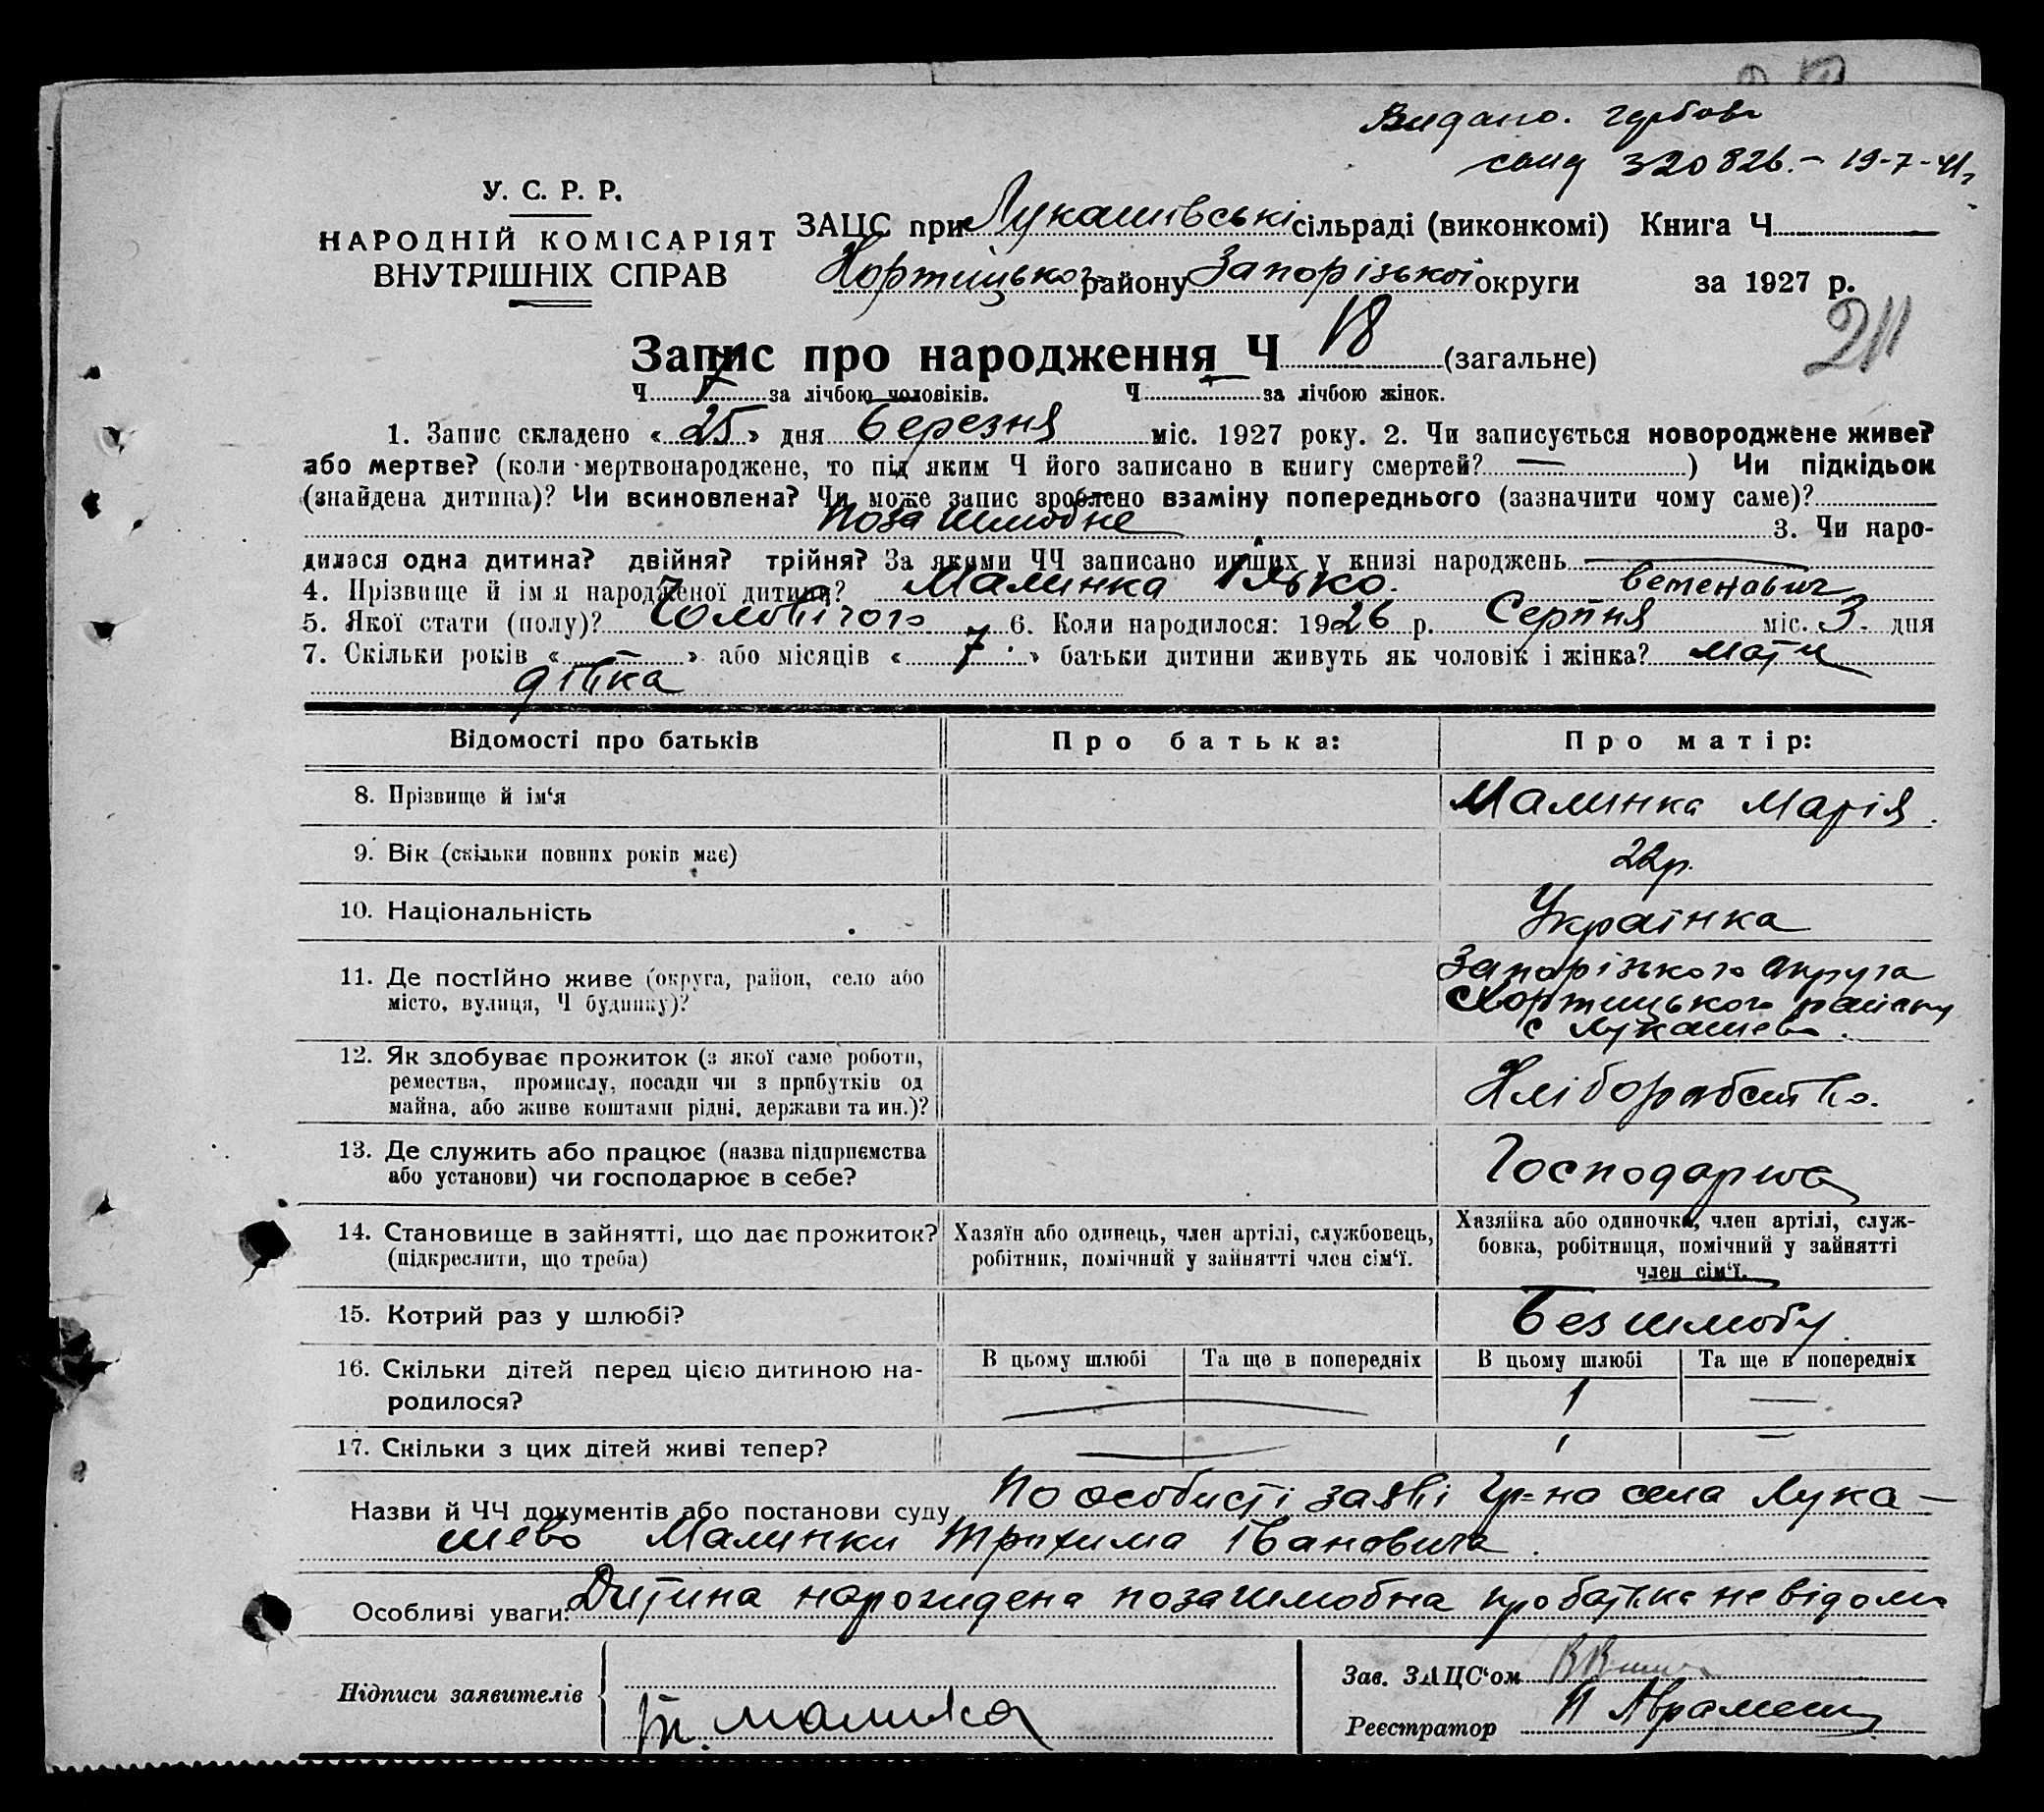 Видано. гербове
свид 320826. – 19-7-41 г
У. С. Р. Р.
НАРОДНІЙ КОМІСАРІЯТ
ВНУТРІШНІХ СПРАВ
ЗАЦС при Лукашівські сільраді (виконкомі) Книга Ч —
Хортицького району Запорізької округи за 1927 р.
211
Запис про народження Ч 18 (загальне)
Ч за лічбою чоловіків. Ч — за лічбою жінок.
1. Запис складено « 25 » дня Березня міс. 1927 року. 2. Чи записується новороджене живе?
або мертве? (коли мертвонароджене, то під яким Ч його записано в книгу смертей? — ) Чи підкідьок
(знайдена дитина)? Чи всиновлена? Чи може запис зроблено взаміну попереднього (зазначити чому саме)?
поза шлюбне 3. Чи наро-
дилася одна дитина? двійня? трійня? За якими ЧЧ записано инших у книзі народжень —
4. Прізвище й ім я народженої дитини? Малинка Ілько.
5. Якої стати (полу)? Чоловічого 6. Коли народилося: 1926 р. Серпня міс. 3. дня
7. Скільки років « — » або місяців « 7. » батьки дитини живуть як чоловік і жінка? мати
дівка
Відомості про батьків Про батька: Про матір:
8. Прізвище й ім‘я Малинка Марія.
9. Вік (скільки повних років має) 22р.
10. Національність Українка
11. Де постійно живе (округа, район, село або
місто, вулиця, Ч будинку)?
Запорізького округа
Хортицького району
с Лукашево.
12. Як здобуває прожиток (з якої саме роботи,
ремества, промислу, посади чи з прибутків од
майна, або живе коштами рідні, держави та ин.)?
Хліборабство.
13. Де служить або працює (назва підприємства
або установи) чи господарює в себе?
Господарюе
14. Становище в зайнятті, що дає прожиток?
(підкреслити, що треба)
Хазяїн або одинець, член артілі, службовець,
робітник, помічний у зайнятті член сім‘ї.
Хазяйка або одиночка, член артілі, служ-
бовка, робітниця, помічний у зайнятті
член сім‘ї.
15. Котрий раз у шлюбі? Без шлюбу.
16. Скільки дітей перед цією дитиною на-
родилося?
В цьому шлюбі Та ще в попередніх В цьому шлюбі Та ще в попередніх
— 1 —
17. Скільки з цих дітей живі тепер? — 1 —
Назви й ЧЧ документів або постанови суду По особисті заяві гр-на села Лука-
шево Малинки Трахима Івановича.
Особливі уваги: Дитина нарождена позашлюбна про батька не відомо
Підписи заявителів
Тр. Малинка
Зав. ЗАЦС‘ом
Реєстратор